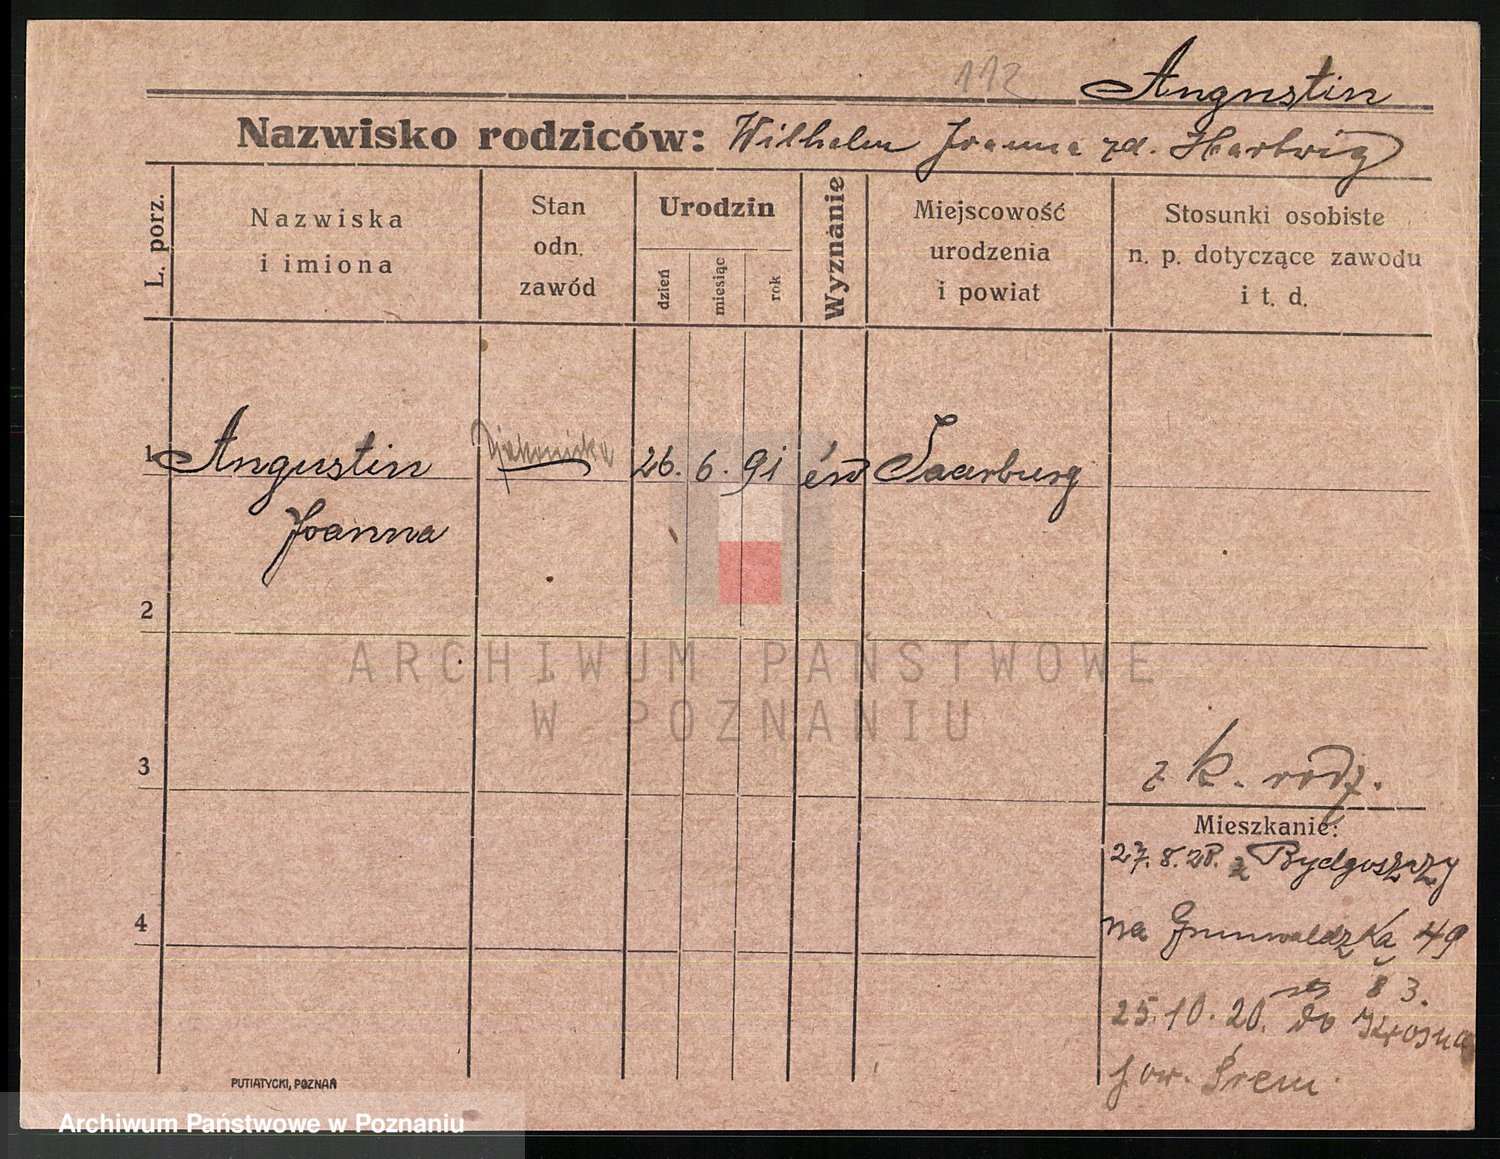 112
Augustin
Nazwisko rodziców: Wilhelm Joanna zd. Hartwig
L. porz.
Nazwiska
i imiona
Stan
odn.
zawód
Urodzin
dzień
miesiąc
rok
Wyznanie
Miejscowość
urodzenia
i powiat
Stosunki osobiste
n. p. dotyczące zawodu
i t. d.
1 Augustin 26. 6. 91 ew Saarburg
Joanna
2
3
4
z k. rodz.
Mieszkanie:
27.8.28. z Bydgoszczy
na Grunwaldzką 49
83.
25.10.20. do Krosna
pow. Śrem.
PUTIATYCKI, POZNAŃ
ARCHIWUM PAŃSTWOWE
W POZNANIU
Archiwum Państwowe w Poznaniu